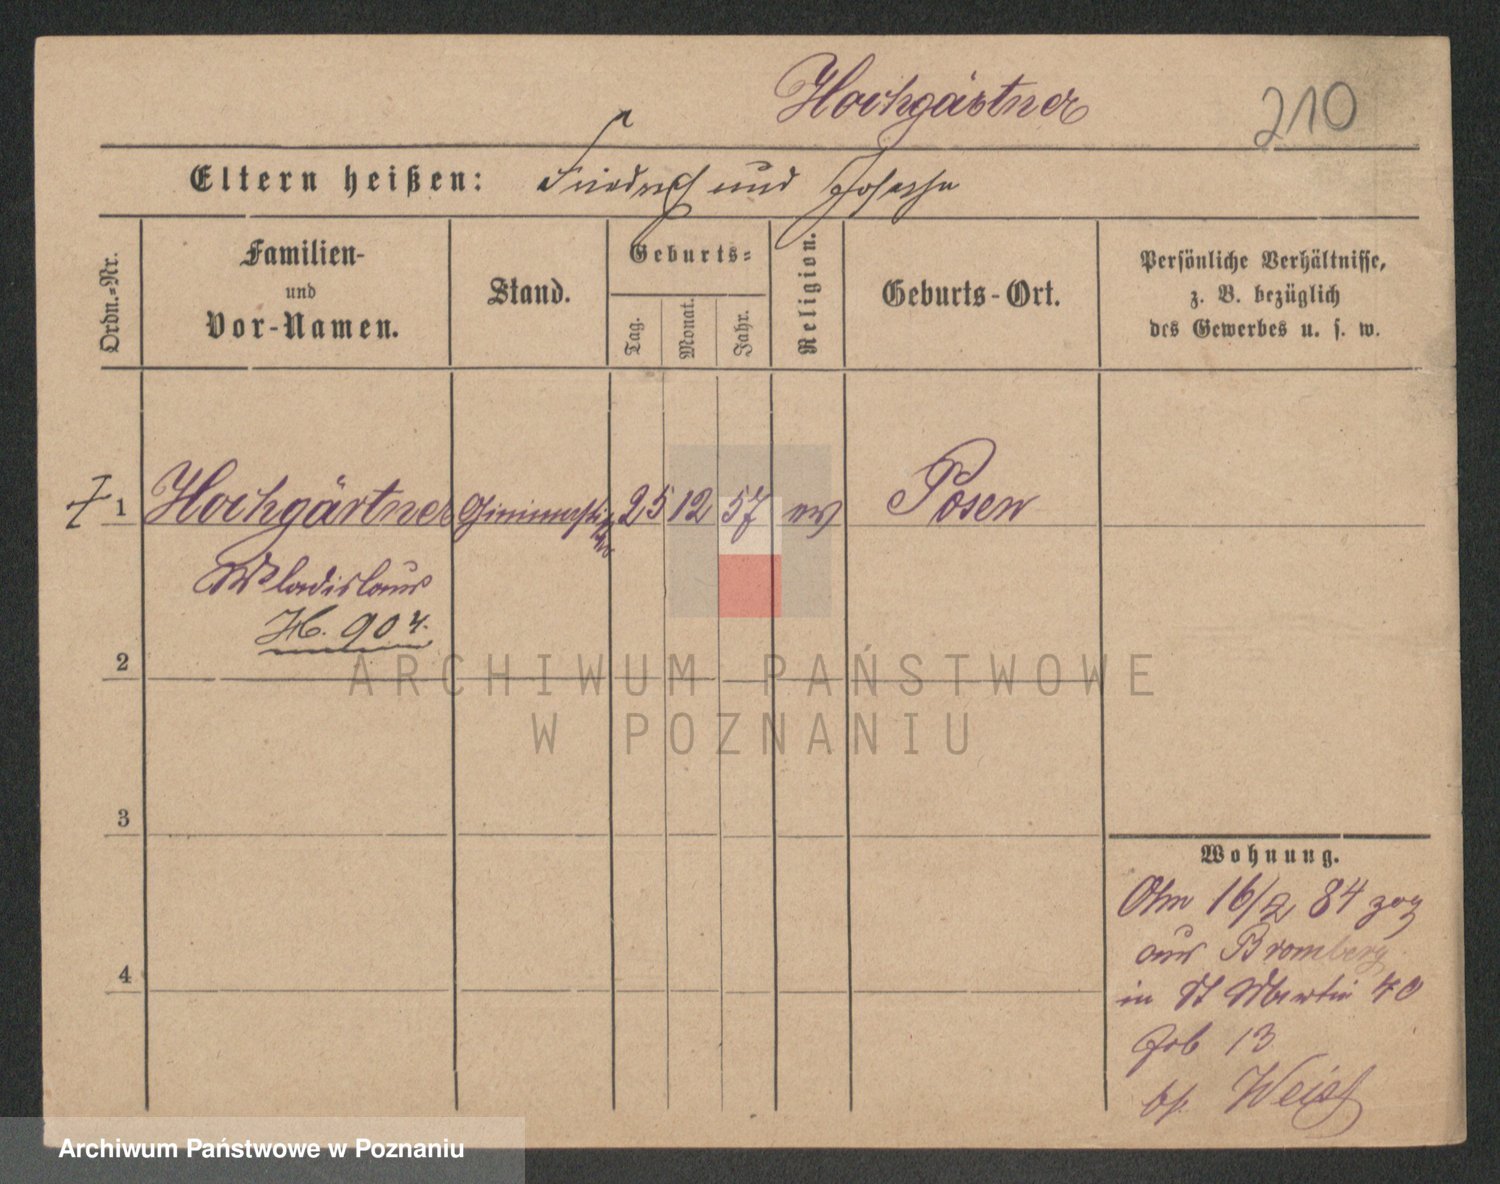 Hochgärtner
210
Eltern heißen: Friedrich und Josepha
Ordn.-Nr.
Familien- und Vor-Namen.
Stand.
Geburts-
Tag.
Monat.
Jahr.
Religion.
Geburts-Ort.
Persönliche Verhältnisse,
z. B. bezüglich
des Gewerbes u. s. w.
1 Hochgärtner 25 12 57 ev Posen
Wladislaus
H. 904.
2
3
4
Wohnung.
16/2 84 zog
aus Bromberg
in St Martin 40
13
Weiss
ARCHIWUM PAŃSTWOWE
W POZNANIU
Archiwum Państwowe w Poznaniu